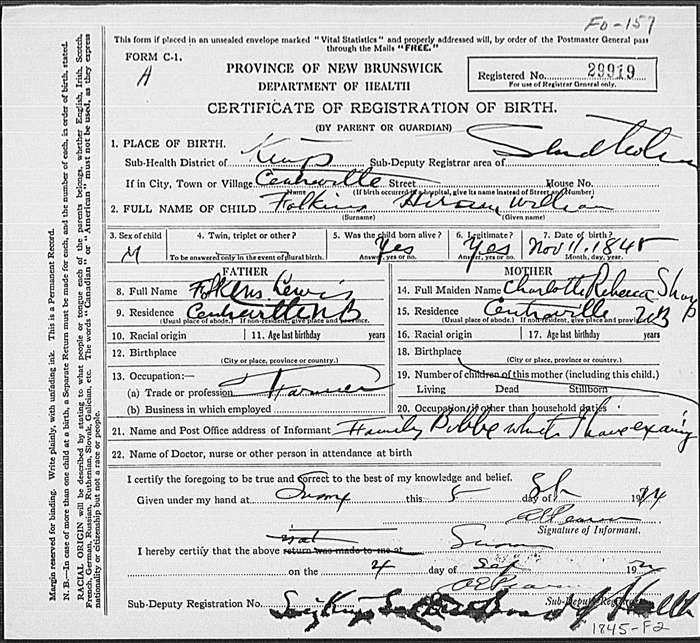 FO-157
This form if placed in an unsealed envelope marked "Vital Statistics" and properly addressed will, by order of the Postmaster General pass
through the Mails "FREE."
FORM C-1.
A
PROVINCE OF NEW BRUNSWICK
DEPARTMENT OF HEALTH
Registered No. 29919
For use of Registrar General only.
CERTIFICATE OF REGISTRATION OF BIRTH.
(BY PARENT OR GUARDIAN)
1. PLACE OF BIRTH.
Sub-Health District of Kings Sub-Deputy Registrar area of Studholm
If in City, Town or Village Centreville Street House No.
Name (If birth occurred in a hospital, give its name instead of Street and Number)
2. FULL NAME OF CHILD Folkins Hiram William
(Surname) (Given name)
3. Sex of child 4. Twin, triplet or other? 5. Was the child born alive? 6. Legitimate? 7. Date of birth?
M Yes Yes Nov 11. 1845
To be answered only in the event of plural birth. Answer, yes or no. Answer, yes or no. Month, day, year.
FATHER
8. Full Name Folkins Lewis
9. Residence Centreville NB
(Usual place of abode.) If non-resident, give place and province.
10. Racial origin 11. Age last birthday years
12. Birthplace
(City or place, province or country.)
13. Occupation:—
(a) Trade or profession Farmer
(b) Business in which employed
MOTHER
14. Full Maiden Name Charlotte Rebecca Sharp
15. Residence Centreville NB
(Usual place of abode.) If non-resident, give place and province
16. Racial origin 17. Age last birthday years
18. Birthplace
(City or place, province or country.)
19. Number of children of this mother (including this child.)
Living Dead Stillborn
20. Occupation if other than household duties
21. Name and Post Office address of Informant Family Bible which I have
22. Name of Doctor, nurse or other person in attendance at birth
I certify the foregoing to be true and correct to the best of my knowledge and belief.
Given under my hand at this 5 day of 19
Signature of Informant.
I hereby certify that the above return was made to me at
on the 4 day of Sep 19
Sub-Deputy Registration No. Sub-Deputy
1845-F2
Margin reserved for binding. Write plainly, with unfading ink. This is a Permanent Record.
N.B.—In case of more than one child at a birth, a Separate Return must be made for each, and the number of each, in order of birth, stated.
RACIAL ORIGIN will be described by stating to what people or tongue each of the parents belongs, whether English, Irish, Scotch,
French, German, Russian, Ruthenian, Slovak, Galician, etc. The words "Canadian" or "American" must not be used, as they express
nationality or citizenship but not a race or people.